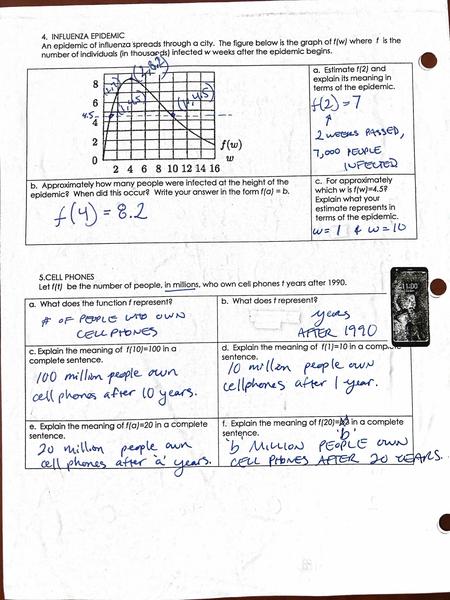 4. INFLUENZA EPIDEMIC
An epidemic of influenza spreads through a city. The figure below is the graph of f(w) where f is the
number of individuals (in thousands) infected w weeks after the epidemic begins.
(4, 8.2)
(2, 7)
(1, 4.5)
(10, 4.5)
8
6
4.5
4
2
0
f(w)
w
2 4 6 8 10 12 14 16
a. Estimate f(2) and
explain its meaning in
terms of the epidemic.
f(2) = 7
2 WEEKS PASSED,
7,000 PEOPLE
INFECTED
b. Approximately how many people were infected at the height of the
epidemic? When did this occur? Write your answer in the form f(a) = b.
f(4) = 8.2
c. For approximately
which w is f(w)=4.5?
Explain what your
estimate represents in
terms of the epidemic.
w= 1 & w= 10
5.CELL PHONES
Let f(t) be the number of people, in millions, who own cell phones t years after 1990.
a. What does the function f represent?
# OF PEOPLE WHO OWN
CELL PHONES
b. What does t represent?
years
AFTER 1990
11:00
c. Explain the meaning of f(10)=100 in a
complete sentence.
100 million people own
cell phones after 10 years.
d. Explain the meaning of f(1)=10 in a
sentence.
10 million people own
cellphones after 1 year.
e. Explain the meaning of f(a)=20 in a complete
sentence.
20 million people own
cell phones after 'a' years.
f. Explain the meaning of f(20)= in a complete
sentence.
'b'
'b MILLION PEOPLE OWN
CELL PHONES AFTER 20 YEARS.